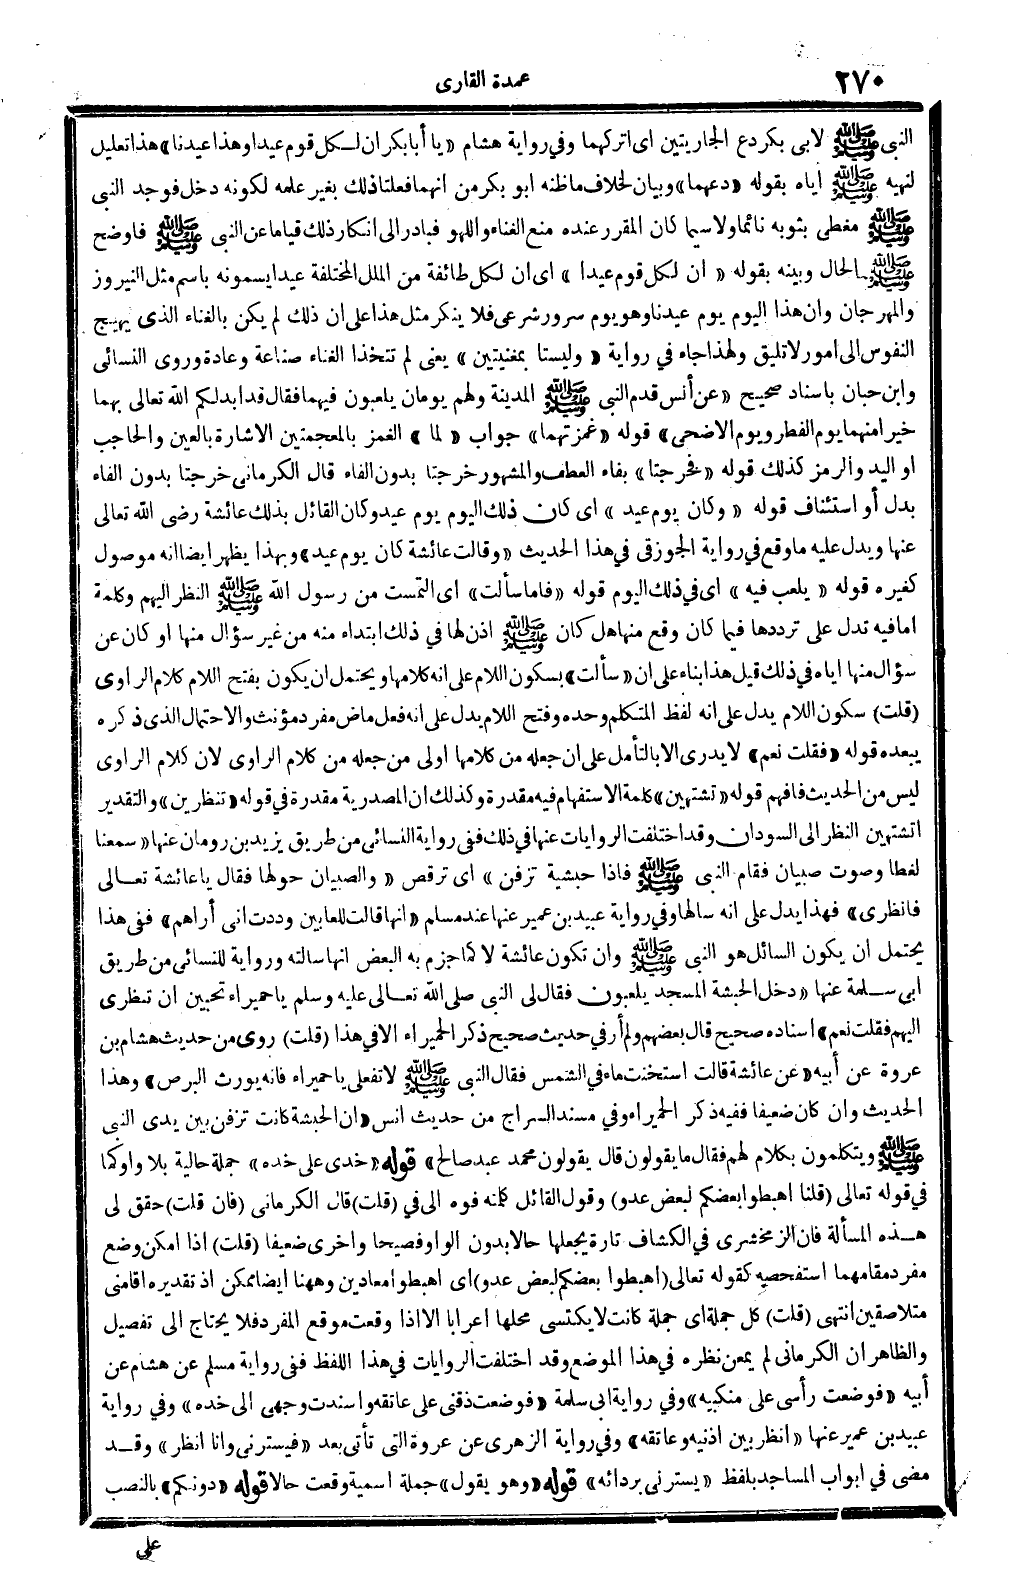 ٢٧٠
عمدة القارى
النبى ﷺ لابى بكر دع الجاريتين اى اتركهما وفى رواية هشام «يا أبا بكر ان لكل قوم عيدا وهذا عيدنا» هذا تعليل
لنهيه ﷺ اياه بقوله «دعهما» وبيان لخلاف ما ظنه ابو بكر من انهما فعلتا ذلك بغير علمه لكونه دخل فوجد النبى
ﷺ مغطى بثوبه نائما ولا سيما كان المقرر عنده منع الغناء واللهو فبادر الى انكار ذلك قياما عن النبى ﷺ فاوضح
ﷺ الحال وبينه بقوله «ان لكل قوم عيدا» اى ان لكل طائفة من الملل المختلفة عيدا يسمونه باسم مثل النيروز
والمهرجان وان هذا اليوم يوم عيدنا وهو يوم سرور شرعى فلا ينكر مثل هذا على ان ذلك لم يكن بالغناء الذى يهيج
النفوس الى امور لا تليق ولهذا جاء فى رواية «وليستا بمغنيتين» يعنى لم تتخذا الغناء صناعة وعادة وروى النسائى
وابن حبان باسناد صحيح «عن أنس قدم النبى ﷺ المدينة ولهم يومان يلعبون فيهما فقال قد ابدلكم الله تعالى بهما
خيرا منهما يوم الفطر ويوم الاضحى» قوله «غمزتهما» جواب «لما» الغمز بالمعجمتين الاشارة بالعين والحاجب
او اليد والرمز كذلك قوله «فخرجتا» بفاء العطف والمشهور خرجتا بدون الفاء قال الكرمانى خرجتا بدون الفاء
بدل أو استئناف قوله «وكان يوم عيد» اى كان ذلك اليوم يوم عيد وكان القائل بذلك عائشة رضى الله تعالى
عنها ويدل عليه ما وقع فى رواية الجوزقى فى هذا الحديث «وقالت عائشة كان يوم عيد» وبهذا يظهر ايضا انه موصول
كغيره قوله «يلعب فيه» اى فى ذلك اليوم قوله «فاما سألت» اى التمست من رسول الله ﷺ النظر اليهم وكلمة
اما فيه تدل على ترددها فيما كان وقع منها هل كان ﷺ اذن لها فى ذلك ابتداء منه من غير سؤال منها او كان عن
سؤال منها اياه فى ذلك قيل هذا بناء على ان «سألت» بسكون اللام على انه كلامها ويحتمل ان يكون بفتح اللام كلام الراوى
(قلت) سكون اللام يدل على انه لفظ المتكلم وحده وفتح اللام يدل على انه فعل ماض مفرد مؤنث والاحتمال الذى ذكره
يبعده قوله «فقلت نعم» لا يدرى الا بالتأمل على ان جعله من كلامها اولى من جعله من كلام الراوى لان كلام الراوى
ليس من الحديث فافهم قوله «تشتهين» كلمة الاستفهام فيه مقدرة وكذلك ان المصدرية مقدرة فى قوله «تنظرين» والتقدير
اتشتهين النظر الى السودان وقد اختلفت الروايات عنها فى ذلك ففى رواية النسائى من طريق يزيد بن رومان عنها «سمعنا
لغطا وصوت صبيان فقام النبى ﷺ فاذا حبشية تزفن» اى ترقص «والصبيان حولها فقال يا عائشة تعالى
فانظرى» فهذا يدل على انه سالها وفى رواية عبيد بن عمير عنها عند مسلم «انها قالت للعابين وددت انى أراهم» ففى هذا
يحتمل ان يكون السائل هو النبى ﷺ وان تكون عائشة لا كما جزم به البعض انها سالته ورواية للنسائى من طريق
ابى سلمة عنها «دخل الحبشة المسجد يلعبون فقال لى النبى صلى الله تعالى عليه وسلم يا حميراء تحبين ان تنظرى
اليهم فقلت نعم» اسناده صحيح قال بعضهم ولم أر فى حديث صحيح ذكر الحميراء الا فى هذا (قلت) روى من حديث هشام بن
عروة عن أبيه «عن عائشة قالت استخنت ماء فى الشمس فقال النبى ﷺ لا تفعلى يا حميراء فانه يورث البرص» وهذا
الحديث وان كان ضعيفا ففيه ذكر الحميراء وفى مسند السراج من حديث انس «ان الحبشة كانت تزفن بين يدى النبى
ﷺ ويتكلمون بكلام لهم فقال ما يقولون قال يقولون محمد عبد صالح» قوله «خدى على خده» جملة حالية بلا واو كما
فى قوله تعالى (قلنا اهبطوا بعضكم لبعض عدو) وقول القائل كلمته فوه الى فى (قلت) قال الكرمانى (فان قلت) حقق لى
هذه المسألة فان الزمخشرى فى الكشاف تارة يجعلها حالا بدون الواو فصيحا واخرى ضعيفا (قلت) اذا امكن وضع
مفرد مقامهما استفحصه كقوله تعالى (اهبطوا بعضكم لبعض عدو) اى اهبطوا معادين وههنا ايضا ممكن اذ تقديره اقامنى
متلاصقين انتهى (قلت) كل جملة اى جملة كانت لا يكتسى محلها اعرابا الا اذا وقعت موقع المفرد فلا يحتاج الى تفصيل
والظاهر ان الكرمانى لم يمعن نظره فى هذا الموضع وقد اختلفت الروايات فى هذا اللفظ ففى رواية مسلم عن هشام عن
أبيه «فوضعت رأسى على منكبيه» وفى رواية ابى سلمة «فوضعت ذقنى على عاتقه واسندت وجهى الى خده» وفى رواية
عبيد بن عمير عنها «انظر بين اذنيه وعاتقه» وفى رواية الزهرى عن عروة التى تأتى بعد «فيسترنى وانا انظر» وقد
مضى فى ابواب المساجد بلفظ «يسترنى بردائه» قوله «وهو يقول» جملة اسمية وقعت حالا قوله «دونكم» بالنصب
على